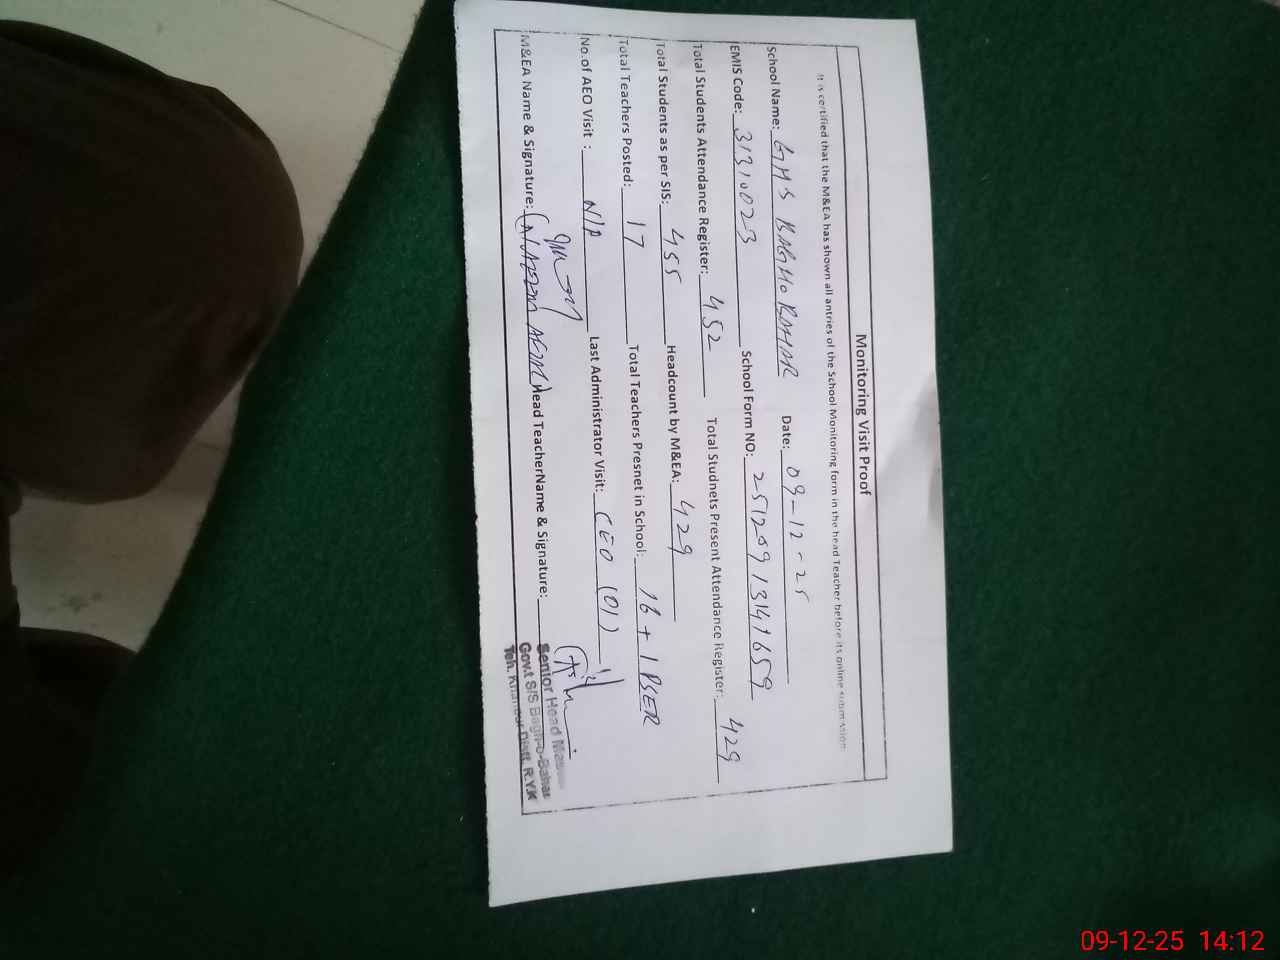 Monitoring Visit Proof
It is certified that the M&EA has shown all antries of the School Monitoring form in the head Teacher before its online submission
School Name: GHS BAGHO BAHAR Date: 09-12-25
EMIS Code: 31310023 School Form NO: 25120913141659
Total Students Attendance Register: 452 Total Studnets Present Attendance Register: 429
Total Students as per SIS: 455 Headcount by M&EA: 429
Total Teachers Posted: 17 Total Teachers Presnet in School: 16 + 1 PSER
No.of AEO Visit : N/A Last Administrator Visit: CEO (01)
M&EA Name & Signature: Head TeacherName & Signature:
Senior Head
Govt S/S Bagh-o-Bahar
Teh. Khanpur Distt. R.Y.K
09-12-25 14:12